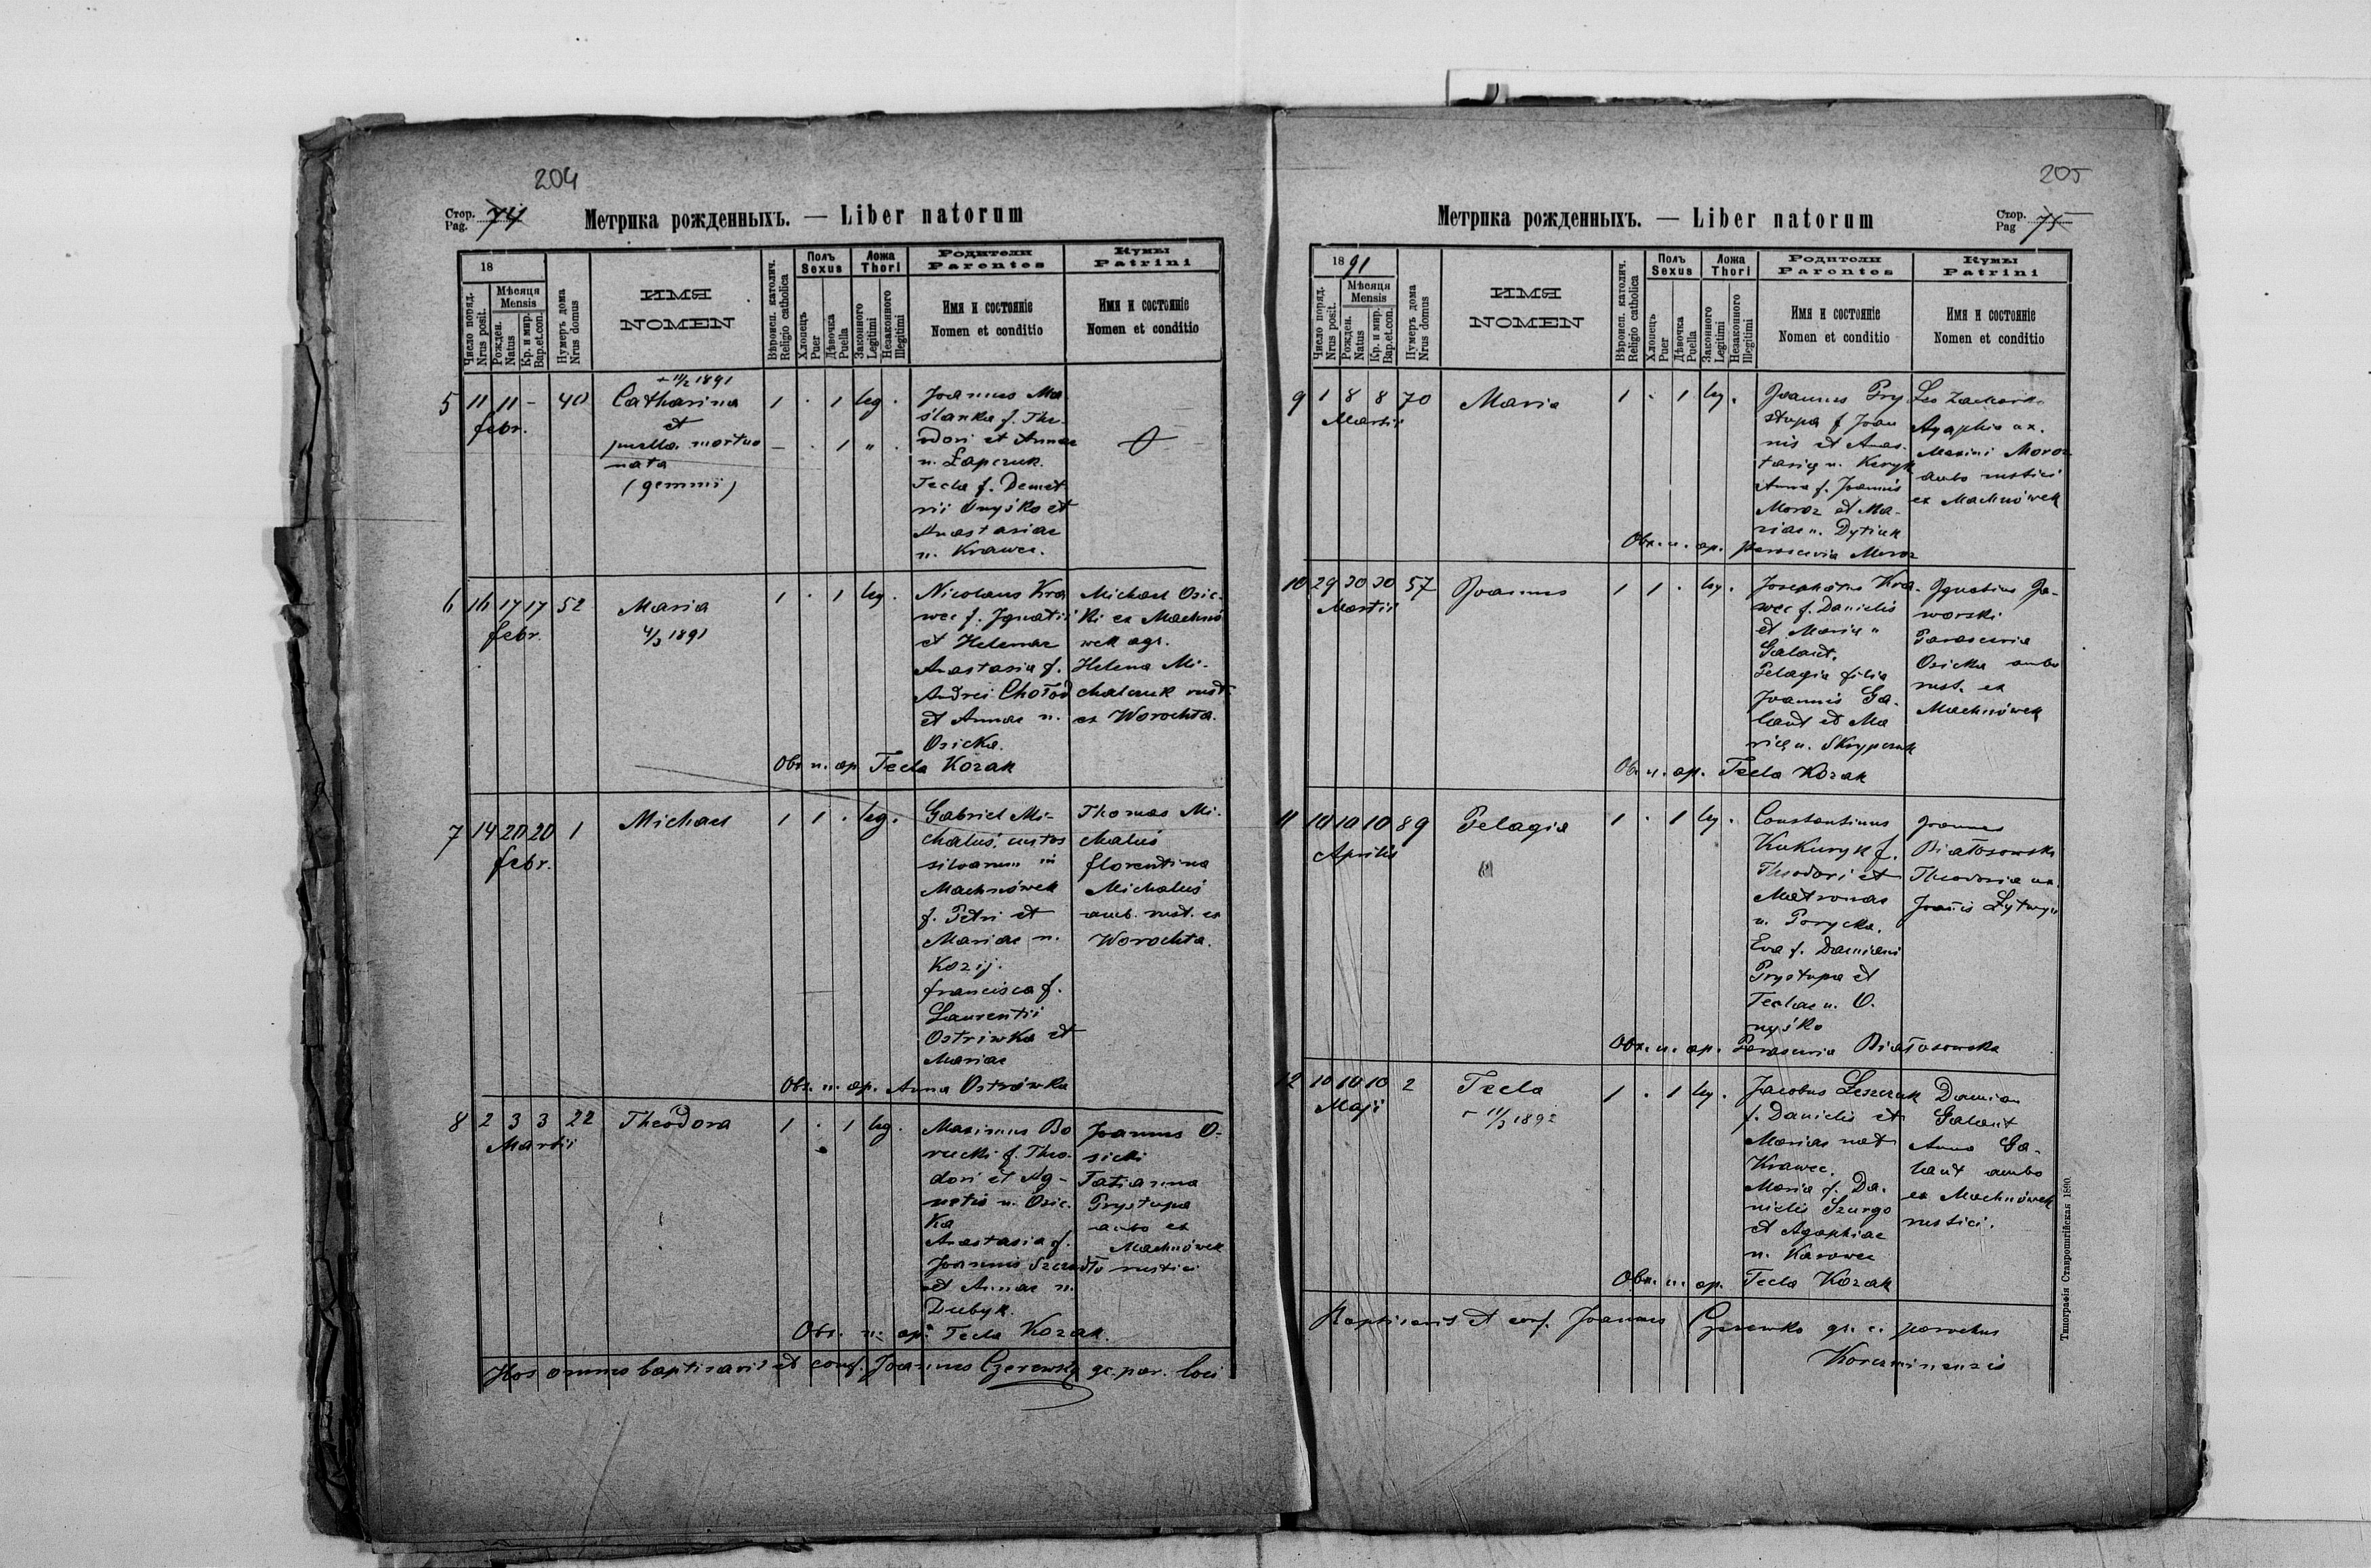 204
Стор.
Pag. 74
Метрика рожденныхъ. — Liber natorum
18
Число поряд.
Nrus posit.
Мѣсяця
Mensis
Рожден.
Natus
Кр. и мир.
Bap.et.con.
Нумеръ дома
Nrus domus
ИМЯ
NOMEN
Вѣроисп. католич.
Religio catholica
Полъ
Sexus
Хлопець
Puer
Дѣвочка
Puella
Ложа
Thori
Законного
Legitimi
Незаконного
Illegitimi
Родители
Parentes
Имя и состояніе
Nomen et conditio
Кумы
Patrini
Имя и состояніе
Nomen et conditio
5 11 11 - 40
febr.
+ 11/2 1891
Catharina
et
puella mortuo
nata
(gemini)
1 . 1 leg .
- . 1 " .
Joannes Ma
ślanka f. The
odori et Annae
n. Łapczuk.
Tecla f. Demet
rii Onyśko et
Anastasiae
n. Krawec.
6 16 17 17 52
febr.
Maria
4/3 1891
1 . 1 leg .
Nicolaus Kra
wec f. Ignatii
et Helenae
Anastasia f.
Andrei Chołod
et Annae n.
Osicka.
Michael Osic-
ki ex Machnó
wek agr.
Helena Mi-
chalczuk rust
ex Worochta.
Obs. n. ap. Tecla Kozak
7 14 20 20 1
febr.
Michael
1 1 . leg .
Gabriel Mi-
chaluś, custos
silvarum in
Machnówek
f. Petri et
Mariae n.
Kozij.
Francisca f.
Laurentii
Ostriwka et
Mariae
Thomas Mi-
chaluś
Florentina
Michaluś
amb. rust. ex
Worochta.
Obs. n. ap. Anna Ostrówka
8 2 3 3 22
Martii
Theodora
1 . 1 leg .
Maximus Bo
rucki f. Theo-
dori et Ag-
netis n. Osic-
ka
Anastasia f.
Joannis Szczudło
et Annae n.
Dubyk.
Joannes O-
sicki
Tatianna
Prystupa
ambo ex
Machnówek
rustici
Obs. n. ap. Tecla Kozak.
Hos omnes baptisavit et conf. Joannes Czerewko gc. par. loci
205
Метрика рожденныхъ. — Liber natorum
Стор.
Pag 75
1891
Число поряд.
Nrus posit.
Мѣсяця
Mensis
Рожден.
Natus
Кр. и мир.
Bap.et.con.
Нумеръ дома
Nrus domus
ИМЯ
NOMEN
Вѣроисп. католич.
Religio catholica
Полъ
Sexus
Хлопець
Puer
Дѣвочка
Puella
Ложа
Thori
Законного
Legitimi
Незаконного
Illegitimi
Родители
Parentes
Имя и состояніе
Nomen et conditio
Кумы
Patrini
Имя и состояніе
Nomen et conditio
9 1 8 8 70
Martii
Maria
1 . 1 leg .
Joannes Pry
stupa f. Joan
nis et Anas-
tasię n. Keryk
Anna f. Joannis
Moroz et Ma-
riae n. Dytiuk
Leo
Agaphia ux.
Maximi Moroz
ambo rustici
ex Machnówek
Obs. n. ap. Parascevia Moroz
10 29 30 30 57
Martii
Joannes
1 1 . leg .
Josephatus Kra
wec f. Danielis
et Marię n
Galant.
Pelagia filia
Joannis Ga-
lant et Ma
rię n. Skrypczuk
Ignatius Ja-
worski
Parascevia
Osicka ambo
rust. ex
Machnówek
Obs. n. ap. Tecla Kozak
11 10 10 10 89
Aprilis
Pelagia
1 . 1 leg .
Constantinus
Kukuryk f.
Theodori et
Matronae
n. Porycka.
Eva f. Damiani
Prystupa et
Teclae n. O-
nyśko
Joannes
Białosowski
Theodosia ux.
Joañis Lytwyn
Obs. n. ap. Parascevia Białosowska
12 10 10 10 2
Maji
Tecla
+ 11/3 1892
1 . 1 leg .
Jacobus Leszczuk
f. Danielis et
Mariae nat
Krawec.
Maria f. Da-
nielis Szurgo
et Agaphiae
n. Karawec
Damian
Galant
Anna Ga-
lant ambo
ex Machnówek
rustici.
Obs. n. ap. Tecla Kozak
Baptisavit et conf. Joannes Czerewko gr. c. parochus
Korczminensis
Типографія Ставропигійская 1890.